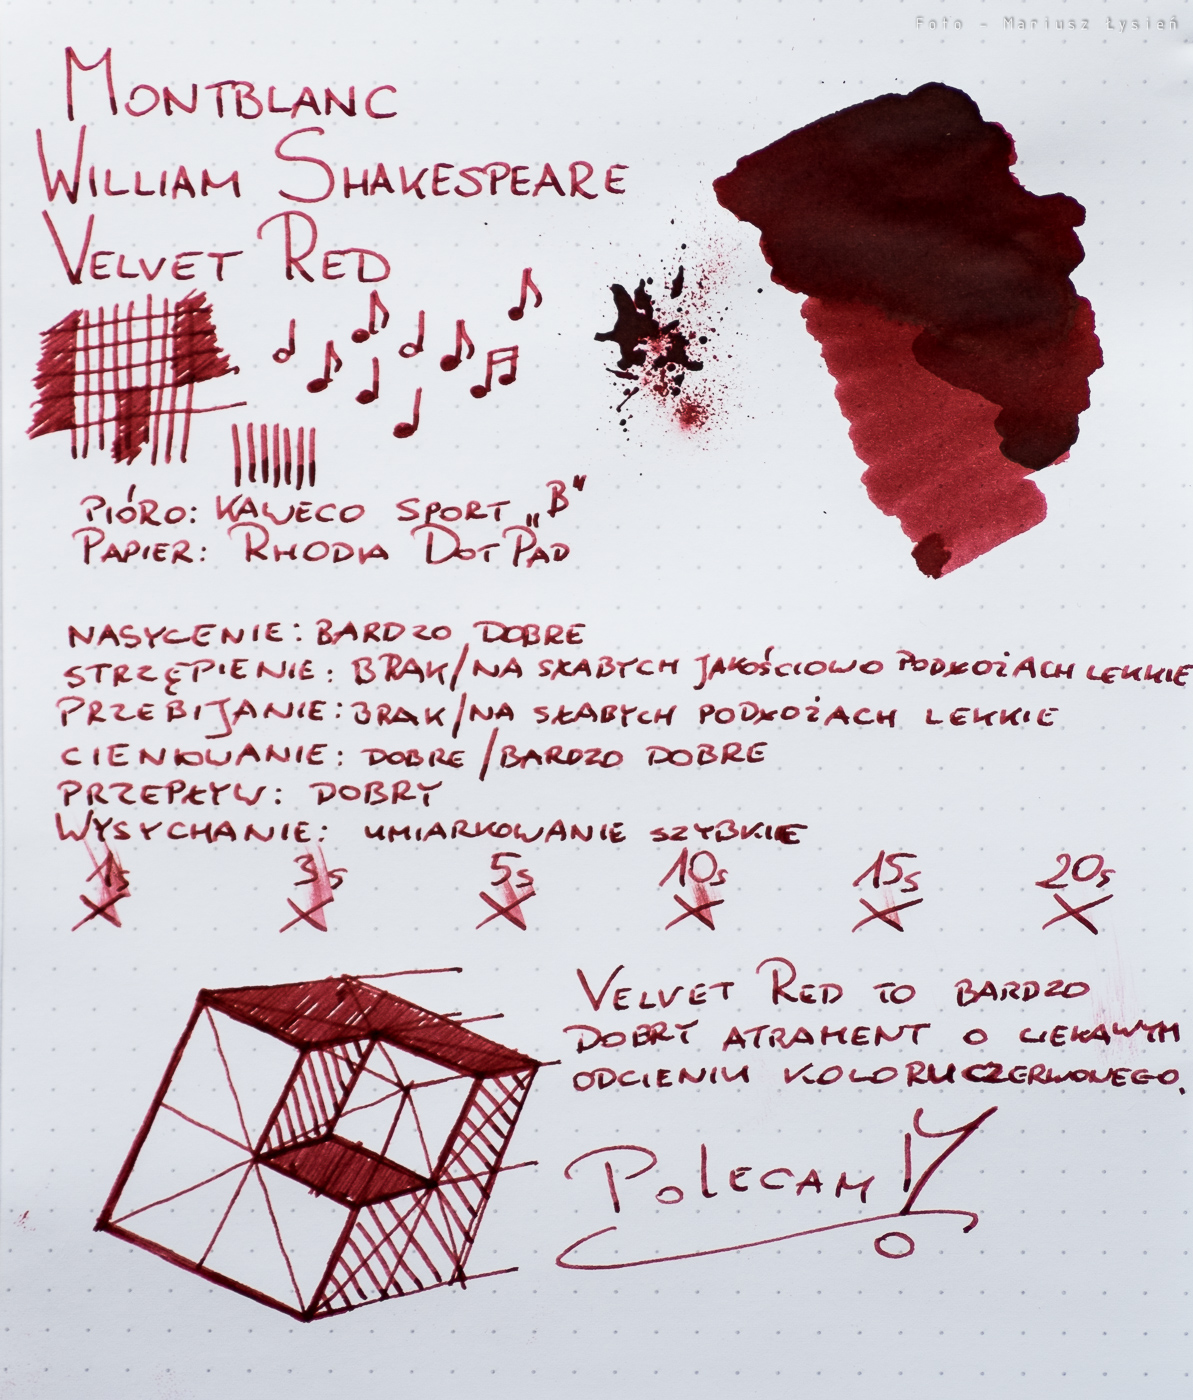 Foto - Mariusz Łysień
MONTBLANC
WILLIAM SHAKESPEARE
VELVET RED
PIÓRO: KAWECO SPORT „B"
PAPIER: RHODIA DOTPAD
NASYCENIE: BARDZO DOBRE
STRZĘPIENIE: BRAK/NA SŁABYCH JAKOŚCIOWO PODŁOŻACH LEKKIE
PRZEBIJANIE: BRAK/NA SŁABYCH PODŁOŻACH LEKKIE
CIENIOWANIE: DOBRE/BARDZO DOBRE
PRZEPŁYW: DOBRY
WYSYCHANIE: UMIARKOWANIE SZYBKIE
1s 3s 5s 10s 15s 20s
X X X X X X
VELVET RED TO BARDZO
DOBRY ATRAMENT O CIEKAWYM
ODCIENIU KOLORU CZERWONEGO.
POLECAM!